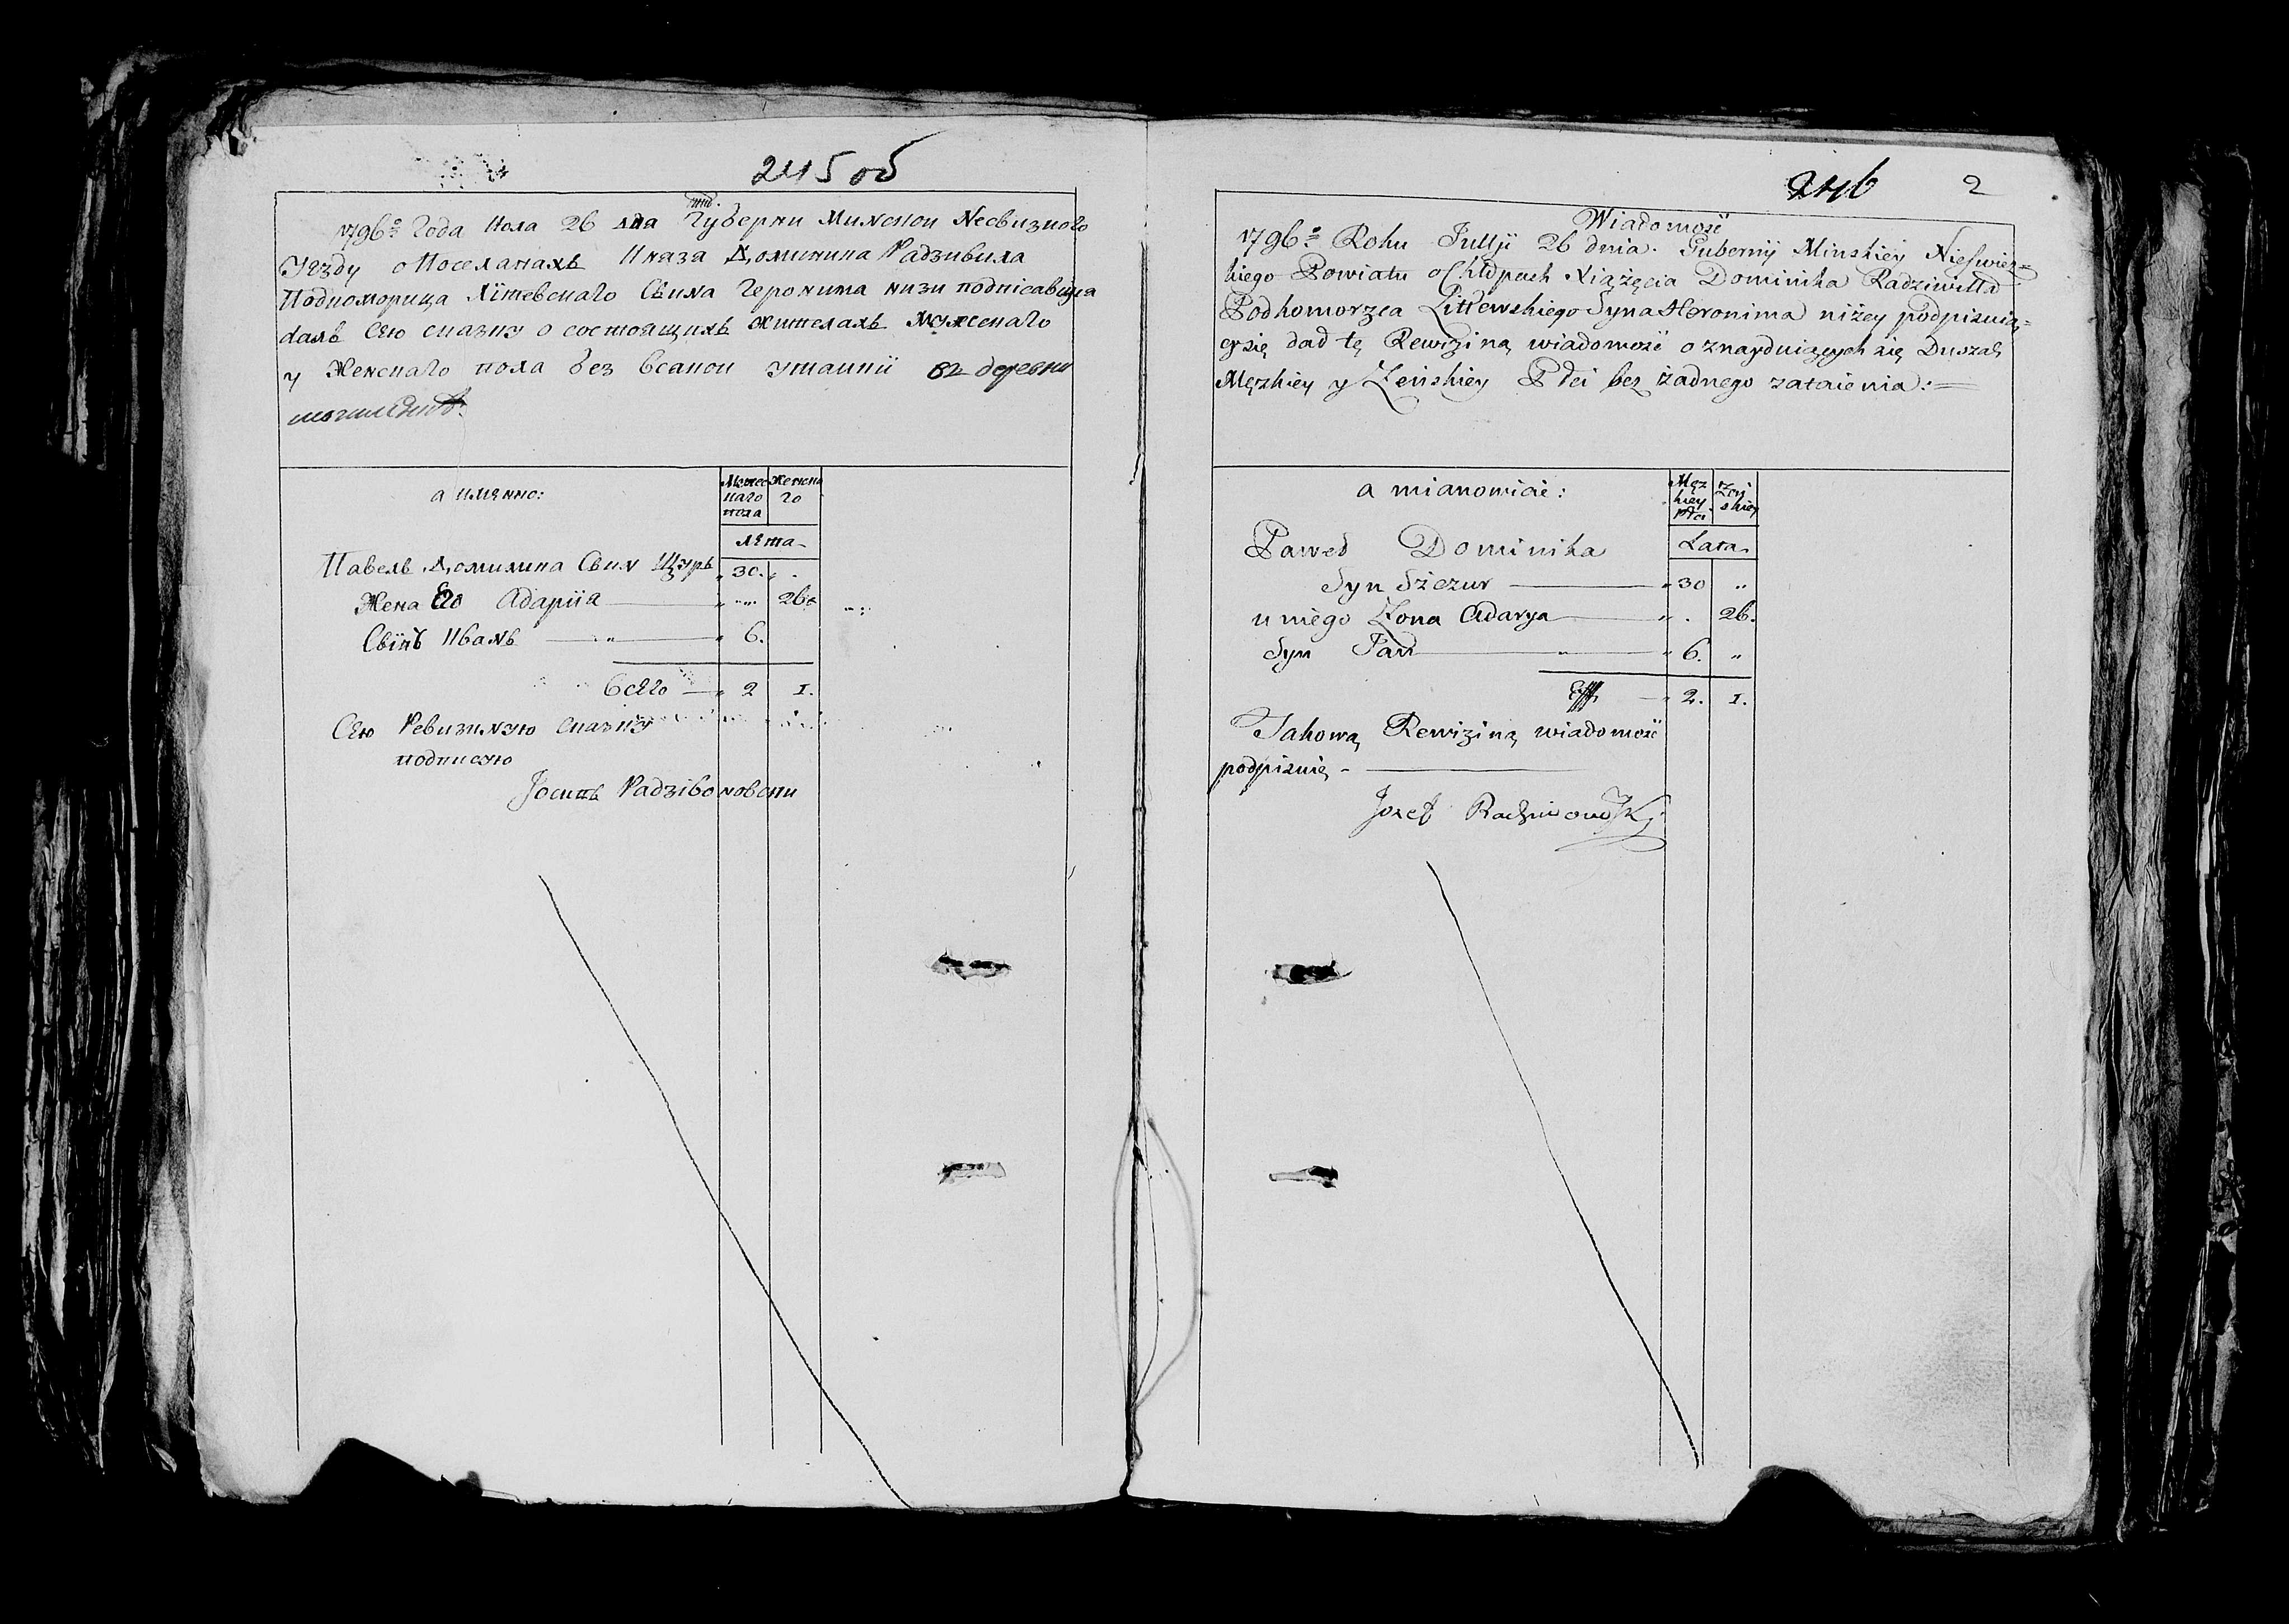 245 об
1796 го года Июла 26 дна Губерни Минскои Несвизкого
Уезду о Поселанахъ Княза Доминика Радзивила
Подкоморица Литевского Свина Геронима низи подпісавшиса
далъ сею сказку о состоящихъ жителахъ мужескаго
у Женскаго пола без Всакои утаиніи въ деревни
а имянно:
Мужескаго пола Женскаго
Лета
Павелъ Доминика Свин Щуръ „ 30. „ .
Жена Его Адаріia „ „ „ 26.
Свінъ Иванъ „ „ 6.
всего „ 2 1.
Сею Ревизикую Сказку
подписую
Іосипъ Радзівоновски
246 2
Wiadomość
1796 o Roku Julÿ 26 dnia. Gubernÿ Minskiey Nieświez=
kiego Powiatu o Chłopach Xiążęcia Dominika Radziwiłła
Podkomorzca Littewskiego Syna Heronima niżey podpisuią=
cy się dał tę Rewizijną wiadomość o znayduiących się Duszach
Męzkiey y Żeńskiey Płci bez żadnego zataienia :=
a mianowicie :
Męzkiey płci Żeńskiey
Lata.
Paweł Dominika
Syn Szczur „ 30 „
u niego Żona Adarya „ . 26.
Syn Jan „ „ 6. „
„ 2. 1.
Takową Rewizijną wiadomość
podpisuię -
Jozef Radziwonowski